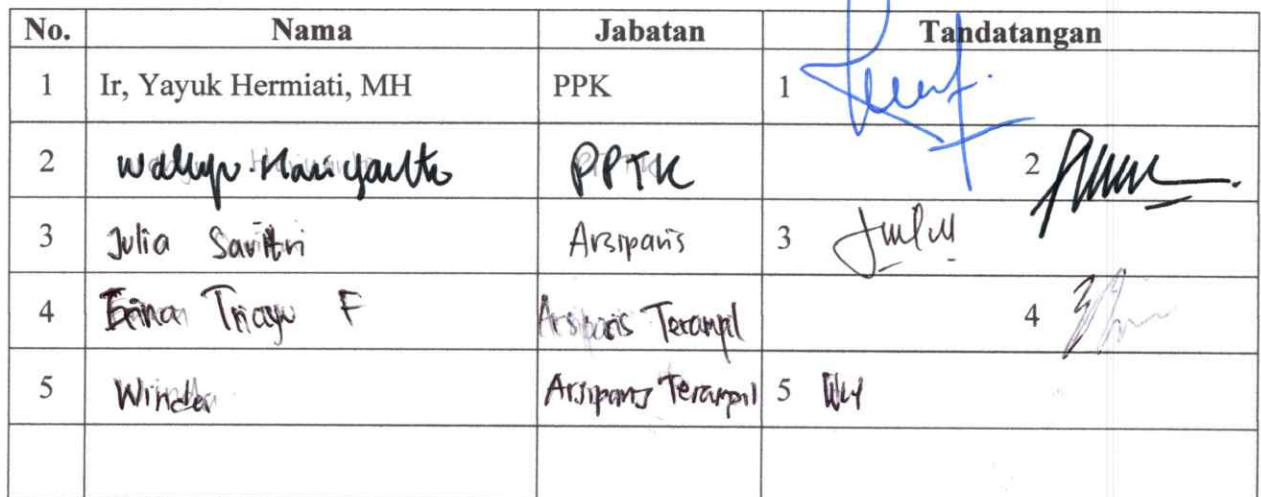 No. Nama Jabatan Tandatangan
1 Ir, Yayuk Hermiati, MH PPK 1
2 Wahyu Hariyanto PPTK 2
3 Julia Savitri Arsiparis 3
4 Erina Triayu F Arsiparis Terampil 4
5 Winda Arsiparis Terampil 5